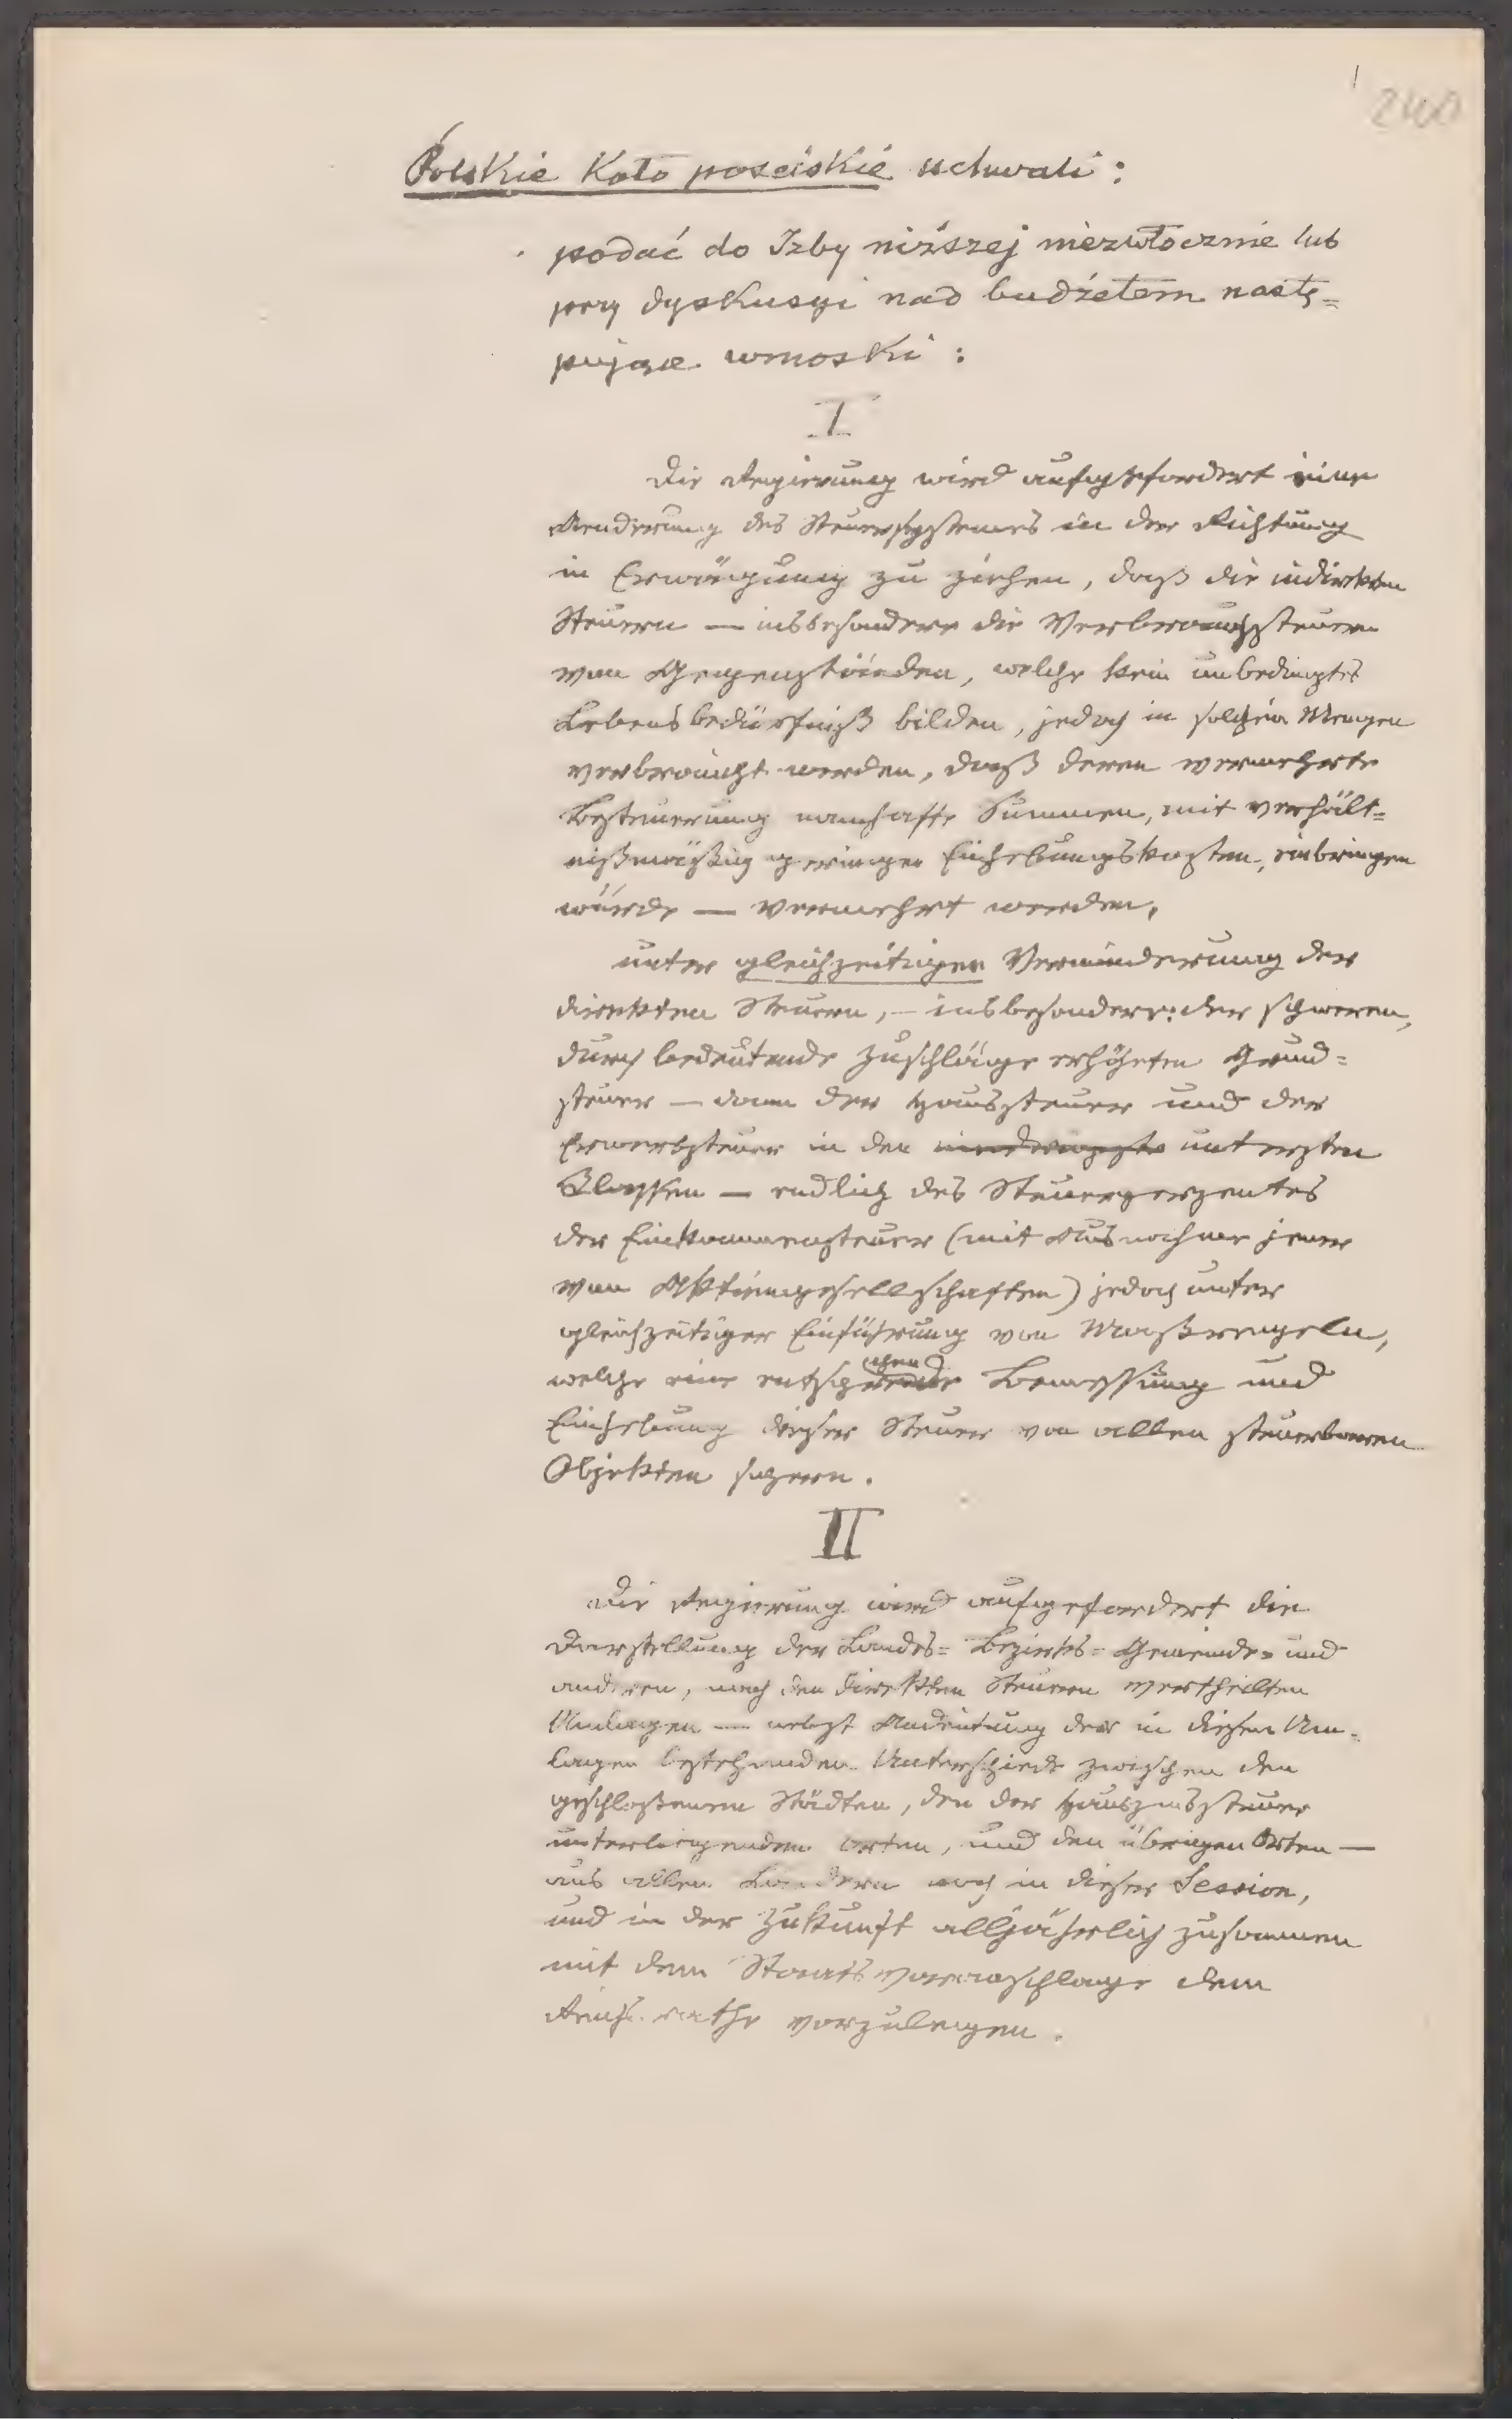 240
Polskie Koło poselskie uchwali:
podać do Izby niższej niezwłocznie lub
przy dyskusyi nad budżetem nastę=
pujące wnioski:
I
Die Regierung wird aufgefordert eine
Aenderung des Steuersystemes in der Richtung
in Erwägung zu ziehen, daß die indirekten
Steuern — insbesondere die Verbrauchssteuern
von Gegenständen, welche kein unbedingtes
Lebensbedürfniß bilden, jedoch in solchen Mengen
verbraucht werden, daß deren vermehrte
Besteuerung namhafte Summen, mit verhält=
nißmäßig geringen Einhebungskosten, einbringen
würde — vermehrt werden,
unter gleichzeitiger Verminderung der
direkten Steuern, — insbesondere: der schweren,
durch bedeutende Zuschläge erhöhten Grund=
steuer — dann der Haussteuer und der
Erwerbsteuer in den untersten
Klassen — endlich des Steuerperzentes
der Einkommensteuer (mit Ausnahme jener
von Aktiengesellschaften) jedoch unter
gleichzeitiger Einführung von Maßregeln,
welche eine Bemessung und
Einhebung dieser Steuer von allen steuerbaren
Objekten sichern.
II
Die Regierung wird aufgefordert die
Darstellung der Landes= Bezirks= Gemeinde= und
anderen, nach den direkten Steuern vertheilten
Umlagen — nebst Andeutung der in diesen Um=
lagen bestehenden Unterschiede zwischen den
geschloßenen Städten, den der Hauszinssteuer
unterliegenden Orten, und den übrigen Orten —
aus allen Ländern noch in dieser Session,
und in der Zukunft alljährlich zusammen
mit dem Staatsvoranschlage dem
Reichsrathe vorzulegen.